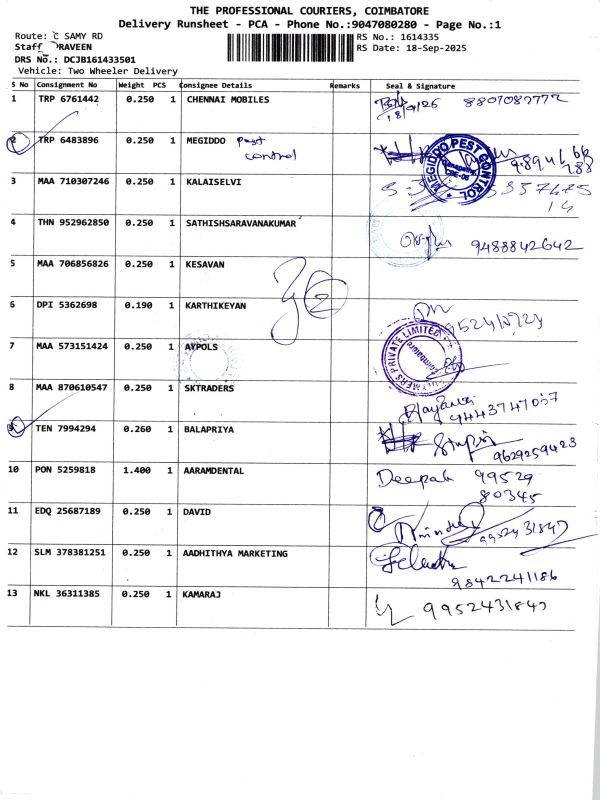 THE PROFESSIONAL COURIERS, COIMBATORE
Delivery Runsheet - PCA - Phone No.:9047080280 - Page No.:1
Route: C SAMY RD RS No.: 1614335
Staff RAVEEN RS Date: 18-Sep-2025
DRS No.: DCJB161433501
Vehicle: Two Wheeler Delivery
S No Consignment No Weight PCS Consignee Details Remarks Seal & Signature
1 TRP 6761442 0.250 1 CHENNAI MOBILES 8807082772
2 TRP 6483896 0.250 1 MEGIDDO pest
control
MEGIDDO PEST CONTROL
3 MAA 710307246 0.250 1 KALAISELVI
4 THN 952962850 0.250 1 SATHISHSARAVANAKUMAR 9488842642
5 MAA 706856826 0.250 1 KESAVAN
6 DPI 5362698 0.190 1 KARTHIKEYAN
7 MAA 573151424 0.250 1 AYPOLS
YMERS PRIVATE LIMITED
Coimbatore
8 MAA 870610547 0.250 1 SKTRADERS
9443747057
9 TEN 7994294 0.260 1 BALAPRIYA
9629259423
10 PON 5259818 1.400 1 AARAMDENTAL Deepak 99529
80345
11 EDQ 25687189 0.250 1 DAVID 9952431847
12 SLM 378381251 0.250 1 AADHITHYA MARKETING
9842241186
13 NKL 36311385 0.250 1 KAMARAJ 9952431847